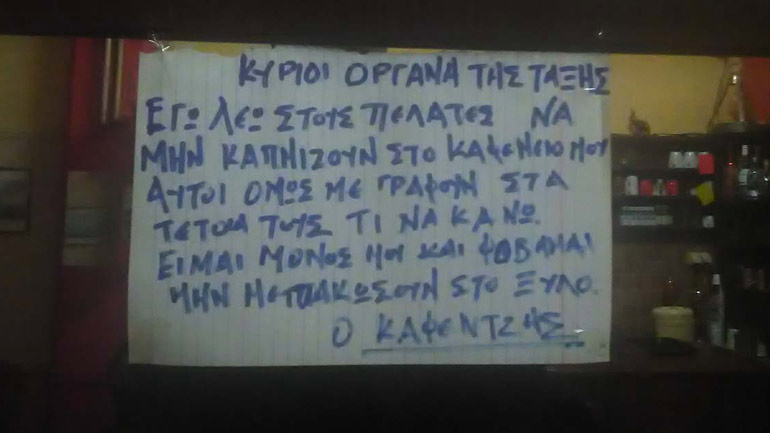 ΚΥΡΙΟΙ ΟΡΓΑΝΑ ΤΗΣ ΤΑΞΗΣ
ΕΓΩ ΛΕΩ ΣΤΟΥΣ ΠΕΛΑΤΕΣ ΝΑ
ΜΗΝ ΚΑΠΝΙΖΟΥΝ ΣΤΟ ΚΑΦΕΝΕΙΟ ΜΟΥ
ΑΥΤΟΙ ΟΜΩΣ ΜΕ ΓΡΑΦΟΥΝ ΣΤΑ
ΤΕΤΟΙΑ ΤΟΥΣ ΤΙ ΝΑ ΚΑΝΩ.
ΕΙΜΑΙ ΜΟΝΟΣ ΜΟΥ ΚΑΙ ΦΟΒΑΜΑΙ
ΜΗΝ ΜΕ ΠΛΑΚΩΣΟΥΝ ΣΤΟ ΞΥΛΟ.
Ο ΚΑΦΕΝΤΖΗΣ